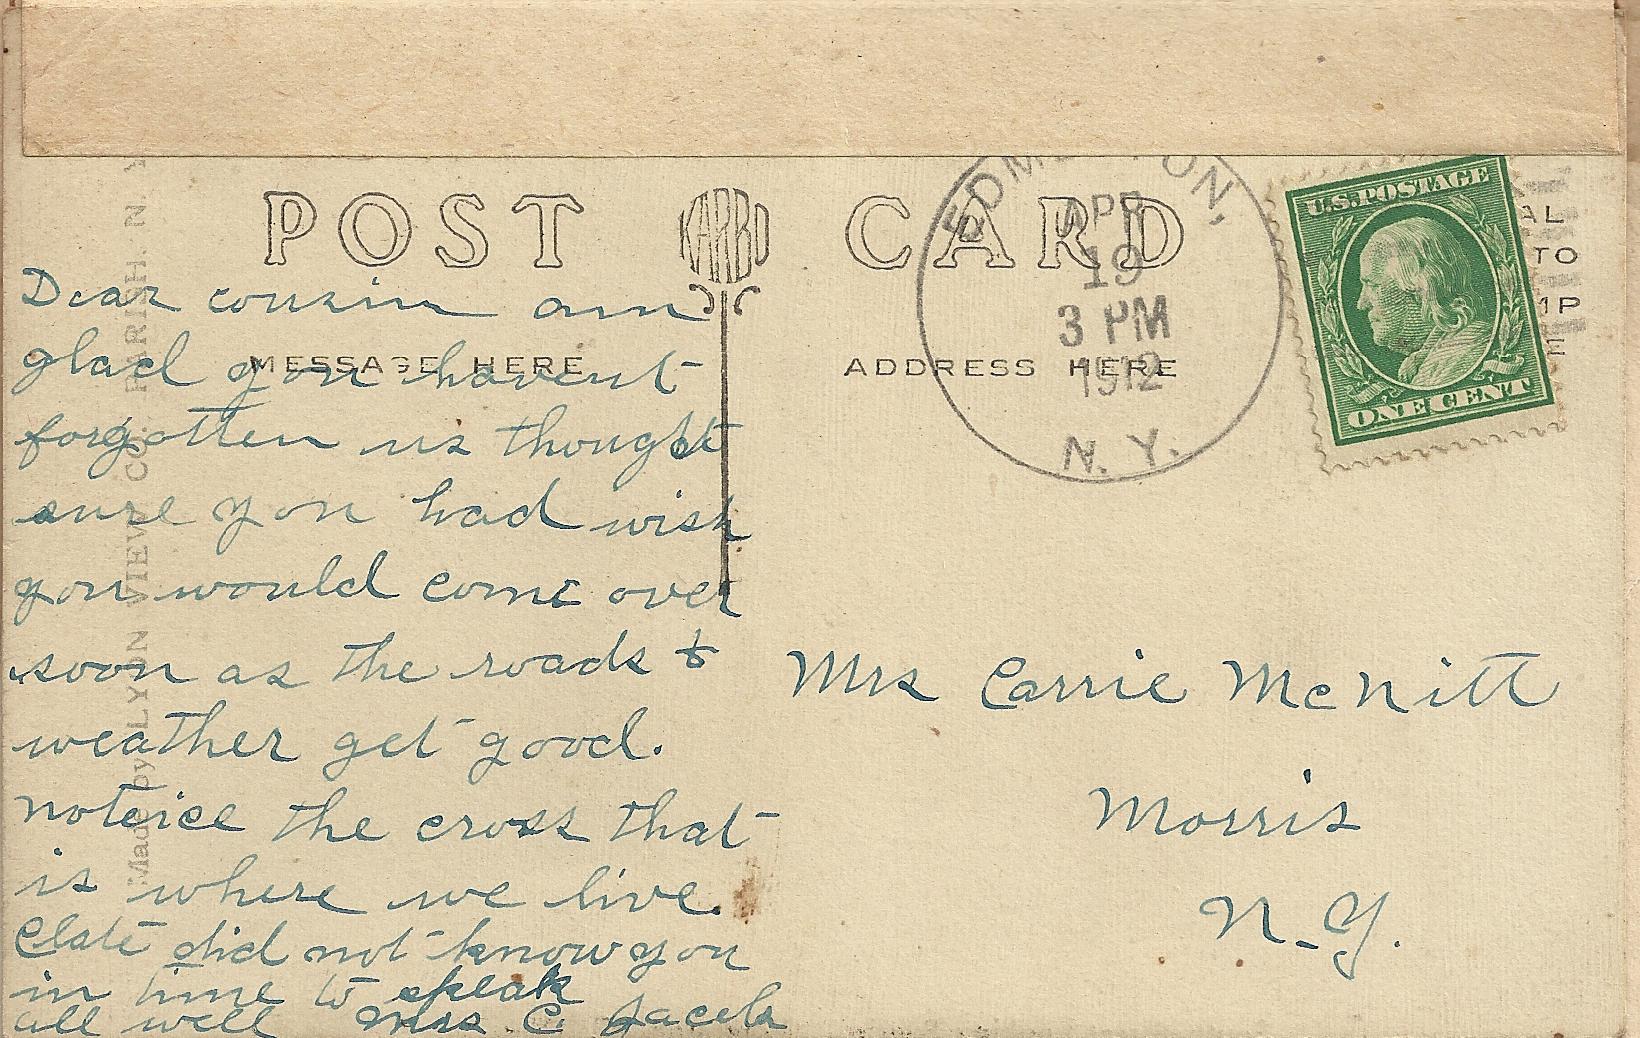 POST CARD
KARBO
MESSAGE HERE
ADDRESS HERE
Dear cousin am
glad you havent
forgotten us thought
sure you had wish
you would come over
soon as the roads &
weather get good.
noteice the cross that
is where we live.
Clate did not know you
in time to speak
all well Mrs C.
Mrs Carrie McNitt
Morris
N-Y.
APR
19
3 PM
1912
N. Y.
U.S. POSTAGE
ONE CENT
AL
TO
MP
E
Made by LYON VIEW CO. PARISH. N. Y